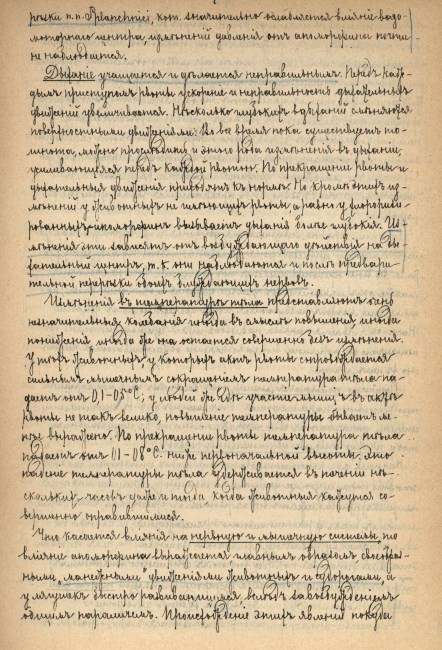 рѣзки n.n. Splanchnici, кот. значительно ослабляется вліяніе вазо-
моторнаго центра, измѣненій давленія отъ апоморфина почти
не наблюдается.
Дыханіе учащается и дѣлается неправильнымъ. Передъ каж-
дымъ приступомъ рвоты ускореніе и неправильность дыхательныхъ
движеній увеличивается. Нѣсколько глубокихъ вдыханій смѣняются
поверхностными движеніями. Во все время пока существуетъ то-
шнота, можно прослѣдить и этого рода измѣненія въ дыханіи,
усиливающіяся передъ каждой рвотою. По прекращеніи рвоты и
дыхательныя движенія приходятъ къ нормѣ. Но кромѣ этихъ из-
мѣненій у животныхъ не имѣющихъ рвоты, а равно и у хлорофор-
рованныхъ апоморфинъ вызываетъ дыханія болѣе глубокія. Из-
мѣненія эти зависятъ отъ возбуждающаго дѣйствія на ды-
хательный центръ, т.к. они наблюдаются и послѣ предвари-
тельной перерѣзки обоихъ блуждающихъ нервовъ.
Измѣненія въ температурѣ тѣла представляютъ очень
незначительныя колебанія иногда въ смыслѣ повышенія иногда
пониженія иногда же она остается совершенно безъ измѣненія.
У тѣхъ животныхъ у которыхъ актъ рвоты сопровождается
сильнымъ мышечнымъ сокращеніемъ температура тѣла па-
даетъ отъ 0,1-05°C; у людей же гдѣ участіе мышцъ въ актѣ
рвоты не такъ велико, повышеніе температуры бываетъ ме-
нѣе выражено. По прекращеніи рвоты температура тѣла
падаетъ отъ 01-08°C. ниже первоначальной высоты. Это
паденіе температуры тѣла удерживается въ теченіи нѣ-
сколькихъ часовъ даже и тогда, когда животныя кажутся со-
вершенно оправившимися.
Что касается вліянія на нервную и мышечную системы, то
вліяніе апоморфина выражается главнымъ образомъ своеобраз-
ными, "манежными" движеніями животныхъ и судорогами, а
у лягушекъ быстро развивающимся вслѣдъ за возбужденіемъ
общимъ параличемъ. Происхожденіе этихъ явленій покуда